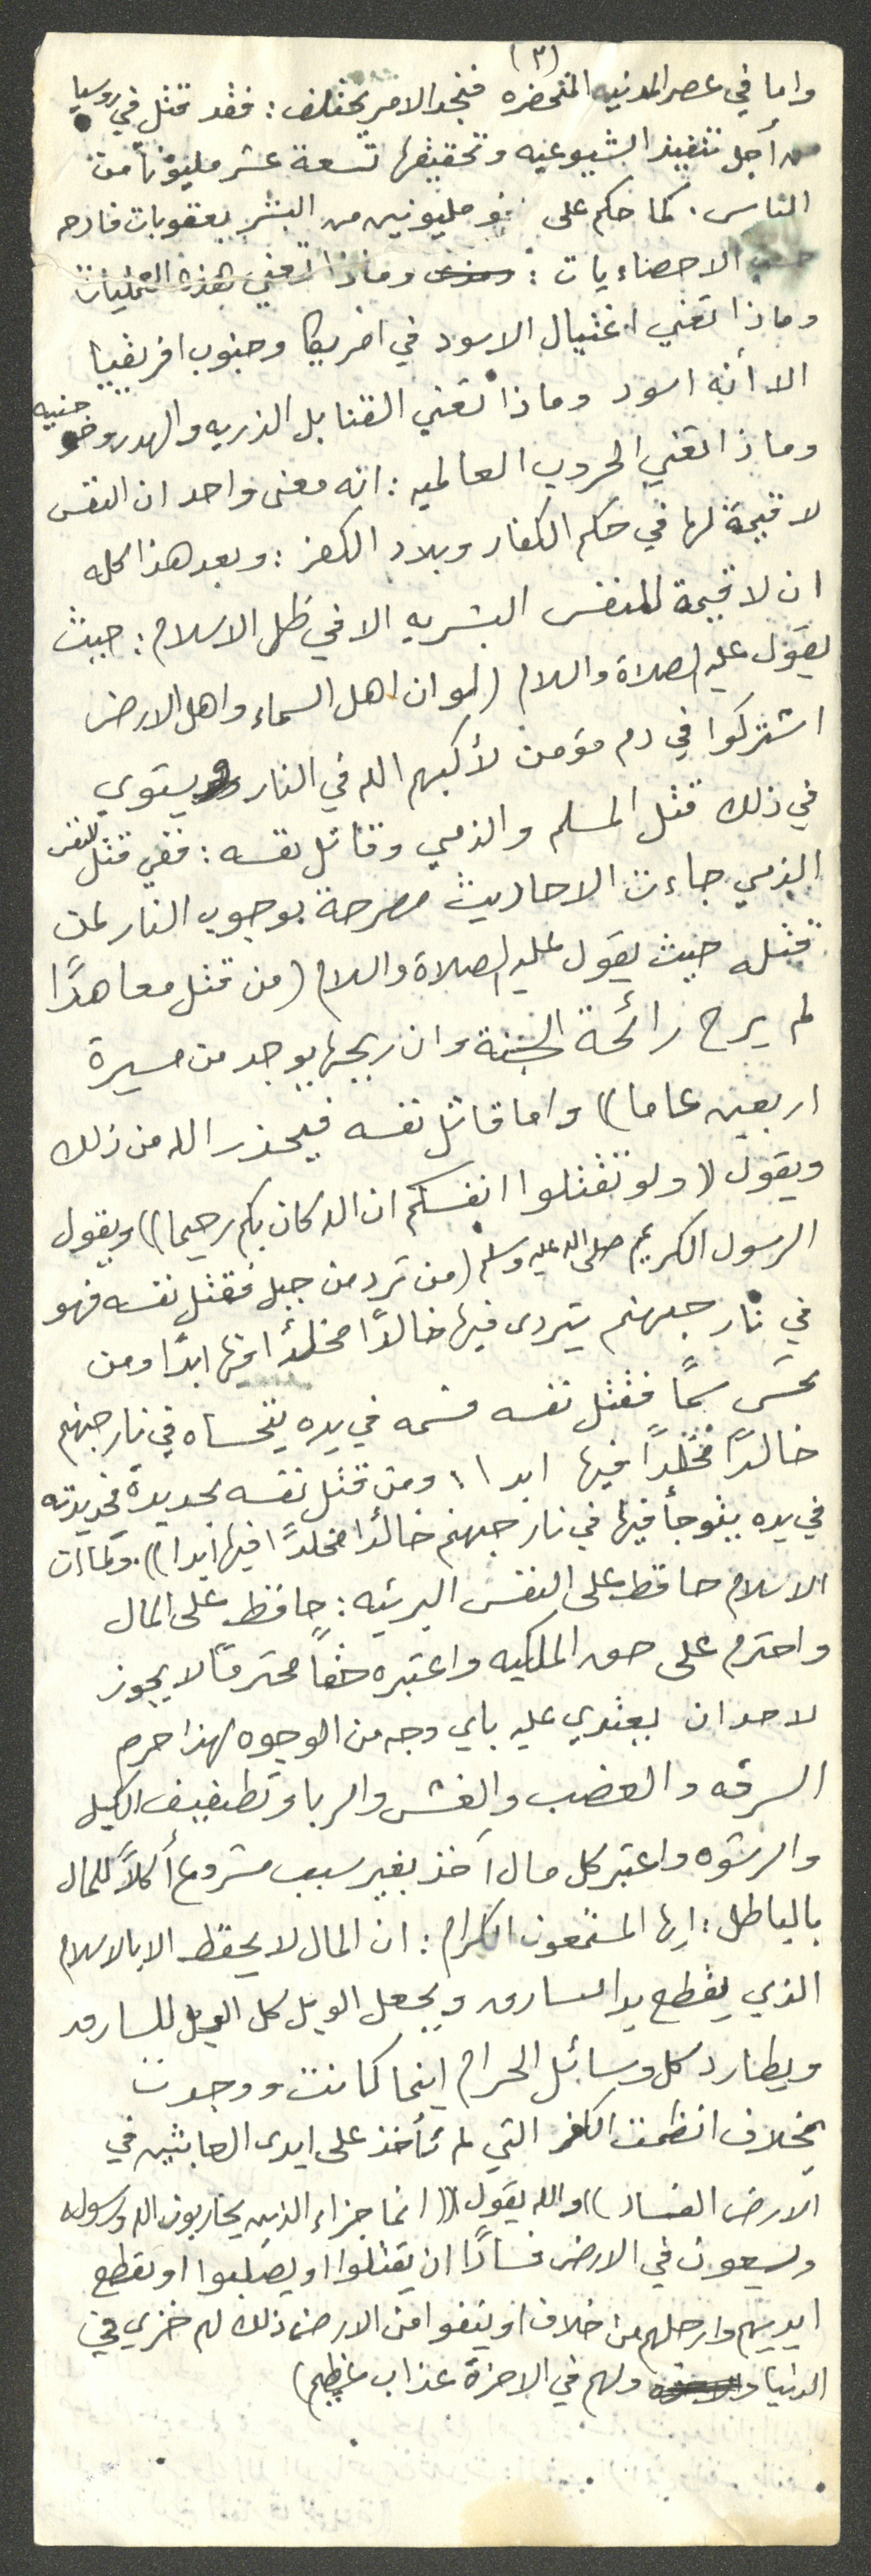 (٣)
واما في عصر المدنيه المتحضره فنجد الامر يختلف : فقد قتل في روسيا
من أجل تنفيذ الشيوعيه وتحقيقها تسعة عشر مليونا من
الناس . كما حكم على نحو مليونين من البشر بعقوبات فادحه
حسب الاحصاءيات : وماذا تعني هذه العمليات
وماذا تعني اغتيال الاسود في امريكا وجنوب افريقيا
الا أنه اسود وماذا تعني القنابل الذريه والهدروجنيه
وماذا تعني الحروب العالميه : انه معنى واحد ان النفس
لا قيمة لها في حكم الكفار وبلاد الكفر : وبعد هذا كله
ان لا قيمة للنفس البشريه الا في ظل الاسلام : حيث
يقول عليه الصلاة والسلام (لو ان اهل السماء واهل الارض
اشتركوا في دم مؤمن لأكبهم الله في النار ويستوي
في ذلك قتل المسلم والذمي وقاتل نفسه : ففي قتل النفس
الذمي جاءت الاحاديث مصرحة بوجوب النار لمن
قتله حيث يقول عليه الصلاة والسلام (من قتل معاهدًا
لم يرح رائحة الجنة وان ريحها يوجد من مسيرة
اربعين عاما)) واما قاتل نفسه فيحذر الله من ذلك
ويقول (ولا تقتلوا انفسكم ان الله كان بكم رحيما)) ويقول
الرسول الكريم صلى الله عليه وسلم (من ترد من جبل فقتل نفسه فهو
في نار جهنم يتردى فيها خالدًا مخلدًا فيها ابدًا ومن
تحسى سمًا فقتل نفسه فسمه في يده يتحساه في نار جهنم
خالدًا مخلدًا فيها ابدا ، ومن قتل نفسه بحديدة فحديدته
في يده يتوجأ فيها في نار جهنم خالدًا مخلدًا فيها ابدا)). وكما ان
الاسلام حافظ على النفس البريئه : حافظ على المال
واحترم على حق الملكيه واعتبره حقًا محترمًا لا يجوز
لاحد ان يعتدي عليه باي وجه من الوجوه لهذا حرم
السرقه والغضب والغش والربا وتطفيف الكيل
والرشوه واعتبر كل مال أخذ بغير سبب مشروع أكلاً للمال
بالباطل : ايها المستمعون الكرام : ان المال لا يحفظ الا بالاسلام
الذي يقطع يد السارق ويجعل الويل كل الويل للسارق
ويطارد كل وسائل الحرام اينما كانت ووجدت
بخلاف انظمة الكفر التي لم تأخذ على ايدى العابثين في
الارض الفساد )) والله يقول (( انما جزاء الذين يحاربون الله ورسوله
ويسعون في الارض فسادًا ان يقتلوا او يصلبوا او تقطع
ايديهم وارجلهم من خلاف او ينفوا من الارض ذلك لهم خزي في
الدنيا ولهم في الاخرة عذاب عظيم)